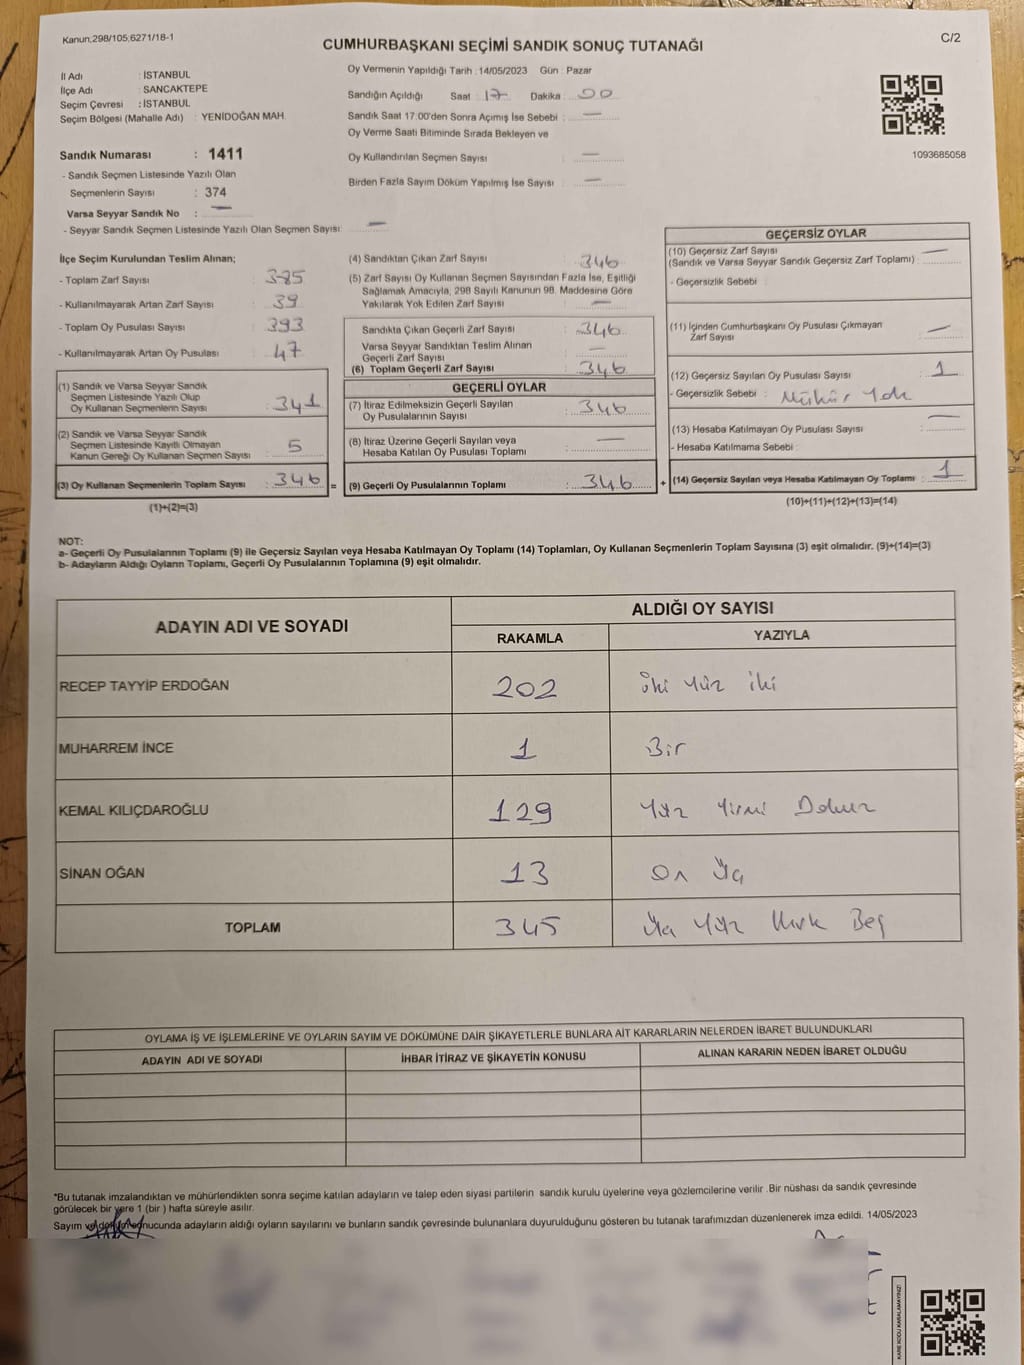 Kanun;298/105;6271/18-1
C/2
CUMHURBAŞKANI SEÇİMİ SANDIK SONUÇ TUTANAĞI
İl Adı : İSTANBUL
İlçe Adı : SANCAKTEPE
Seçim Çevresi : İSTANBUL
Seçim Bölgesi (Mahalle Adı) : YENİDOĞAN MAH.
Sandık Numarası : 1411
- Sandık Seçmen Listesinde Yazılı Olan
Seçmenlerin Sayısı : 374
Varsa Seyyar Sandık No : —
- Seyyar Sandık Seçmen Listesinde Yazılı Olan Seçmen Sayısı: —
Oy Vermenin Yapıldığı Tarih : 14/05/2023 Gün : Pazar
Sandığın Açıldığı Saat : 17 Dakika : 00
Sandık Saat 17:00'den Sonra Açımış İse Sebebi : —
Oy Verme Saati Bitiminde Sırada Bekleyen ve
Oy Kullandırılan Seçmen Sayısı : —
Birden Fazla Sayım Döküm Yapılmış İse Sayısı : —
1093685058
İlçe Seçim Kurulundan Teslim Alınan;
- Toplam Zarf Sayısı : 385
- Kullanılmayarak Artan Zarf Sayısı : 39
- Toplam Oy Pusulası Sayısı : 393
- Kullanılmayarak Artan Oy Pusulası : 47
(1) Sandık ve Varsa Seyyar Sandık
Seçmen Listesinde Yazılı Olup
Oy Kullanan Seçmenlerin Sayısı : 341
(2) Sandık ve Varsa Seyyar Sandık
Seçmen Listesinde Kayıtlı Olmayan
Kanun Gereği Oy Kullanan Seçmen Sayısı : 5
(3) Oy Kullanan Seçmenlerin Toplam Sayısı : 346 =
(1)+(2)=(3)
(4) Sandıktan Çıkan Zarf Sayısı : 346
(5) Zarf Sayısı Oy Kullanan Seçmen Sayısından Fazla İse, Eşitliği
Sağlamak Amacıyla, 298 Sayılı Kanunun 98. Maddesine Göre
Yakılarak Yok Edilen Zarf Sayısı : —
Sandıkta Çıkan Geçerli Zarf Sayısı : 346
Varsa Seyyar Sandıktan Teslim Alınan
Geçerli Zarf Sayısı : —
(6) Toplam Geçerli Zarf Sayısı : 346
GEÇERLİ OYLAR
(7) İtiraz Edilmeksizin Geçerli Sayılan
Oy Pusulalarının Sayısı : 346
(8) İtiraz Üzerine Geçerli Sayılan veya
Hesaba Katılan Oy Pusulası Toplamı : —
(9) Geçerli Oy Pusulalarının Toplamı : 346 +
GEÇERSİZ OYLAR
(10) Geçersiz Zarf Sayısı
(Sandık ve Varsa Seyyar Sandık Geçersiz Zarf Toplamı) : —
- Geçersizlik Sebebi :
(11) İçinden Cumhurbaşkanı Oy Pusulası Çıkmayan
Zarf Sayısı : —
(12) Geçersiz Sayılan Oy Pusulası Sayısı : 1
- Geçersizlik Sebebi : Mühür Yok
(13) Hesaba Katılmayan Oy Pusulası Sayısı : —
- Hesaba Katılmama Sebebi :
(14) Geçersiz Sayılan veya Hesaba Katılmayan Oy Toplamı : 1
(10)+(11)+(12)+(13)=(14)
NOT:
a- Geçerli Oy Pusulalarının Toplamı (9) ile Geçersiz Sayılan veya Hesaba Katılmayan Oy Toplamı (14) Toplamları, Oy Kullanan Seçmenlerin Toplam Sayısına (3) eşit olmalıdır. (9)+(14)=(3)
b- Adayların Aldığı Oyların Toplamı, Geçerli Oy Pusulalarının Toplamına (9) eşit olmalıdır.
ADAYIN ADI VE SOYADI ALDIĞI OY SAYISI
RAKAMLA YAZIYLA
RECEP TAYYİP ERDOĞAN 202 iki Yüz iki
MUHARREM İNCE 1 Bir
KEMAL KILIÇDAROĞLU 129 Yüz Yirmi Dokuz
SİNAN OĞAN 13 On Üç
TOPLAM 345 Üç Yüz Kırk Beş
OYLAMA İŞ VE İŞLEMLERİNE VE OYLARIN SAYIM VE DÖKÜMÜNE DAİR ŞİKAYETLERLE BUNLARA AİT KARARLARIN NELERDEN İBARET BULUNDUKLARI
ADAYIN ADI VE SOYADI İHBAR İTİRAZ VE ŞİKAYETİN KONUSU ALINAN KARARIN NEDEN İBARET OLDUĞU
*Bu tutanak imzalandıktan ve mühürlendikten sonra seçime katılan adayların ve talep eden siyasi partilerin sandık kurulu üyelerine veya gözlemcilerine verilir .Bir nüshası da sandık çevresinde
görülecek bir yere 1 (bir ) hafta süreyle asılır.
Sayım ve döküm sonucunda adayların aldığı oyların sayılarını ve bunların sandık çevresinde bulunanlara duyurulduğunu gösteren bu tutanak tarafımızdan düzenlenerek imza edildi. 14/05/2023
KARE KODU KARALAMAYINIZ!